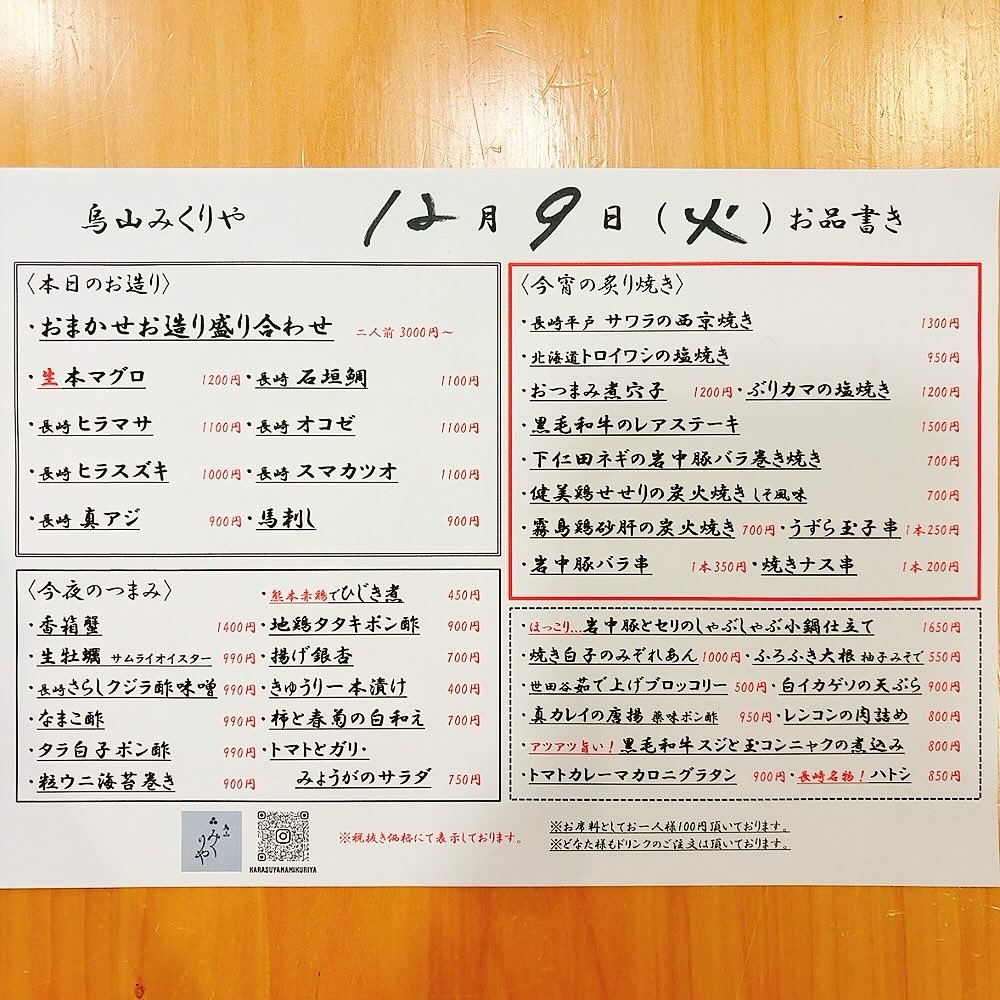 烏山みくりや 12月9日(火)お品書き
〈本日のお造り〉
・おまかせお造り盛り合わせ 二人前 3000円~
・生本マグロ 1200円・長崎 石垣鯛 1100円
・長崎 ヒラマサ 1100円・長崎 オコゼ 1100円
・長崎 ヒラスズキ 1000円・長崎 スマカツオ 1100円
・長崎 真アジ 900円・馬刺し 900円
〈今夜のつまみ〉 ・熊本赤鶏でひじき煮 450円
・香箱蟹 1400円・地鶏タタキポン酢 900円
・生牡蠣 サムライオイスター 990円・揚げ銀杏 700円
・長崎さらしクジラ酢味噌 990円・きゅうり一本漬け 400円
・なまこ酢 990円・柿と春菊の白和え 700円
・タラ白子ポン酢 990円・トマトとガリ・
・粒ウニ海苔巻き 900円 みょうがのサラダ 750円
〈今宵の炙り焼き〉
・長崎平戸 サワラの西京焼き 1300円
・北海道トロイワシの塩焼き 950円
・おつまみ煮穴子 1200円・ぶりカマの塩焼き 1200円
・黒毛和牛のレアステーキ 1500円
・下仁田ネギの岩中豚バラ巻き焼き 700円
・健美鶏せせりの炭火焼き しそ風味 700円
・霧島鶏砂肝の炭火焼き 700円・うずら玉子串 1本250円
・岩中豚バラ串 1本350円・焼きナス串 1本200円
・ほっこり…岩中豚とセリのしゃぶしゃぶ小鍋仕立て 1650円
・焼き白子のみぞれあん 1000円・ふろふき大根 柚子みそで 550円
・世田谷茹で上げブロッコリー 500円・白イカゲソの天ぷら 900円
・真カレイの唐揚 薬味ポン酢 950円・レンコンの肉詰め 800円
・アツアツ旨い!黒毛和牛スジと玉コンニャクの煮込み 800円
・トマトカレーマカロニグラタン 900円・長崎名物!ハトシ 850円
みくりや
KARASUYAMAMIKURIYA
※税抜き価格にて表示しております。
※お席料としてお一人様100円頂いております。
※どなた様もドリンクのご注文は頂いております。